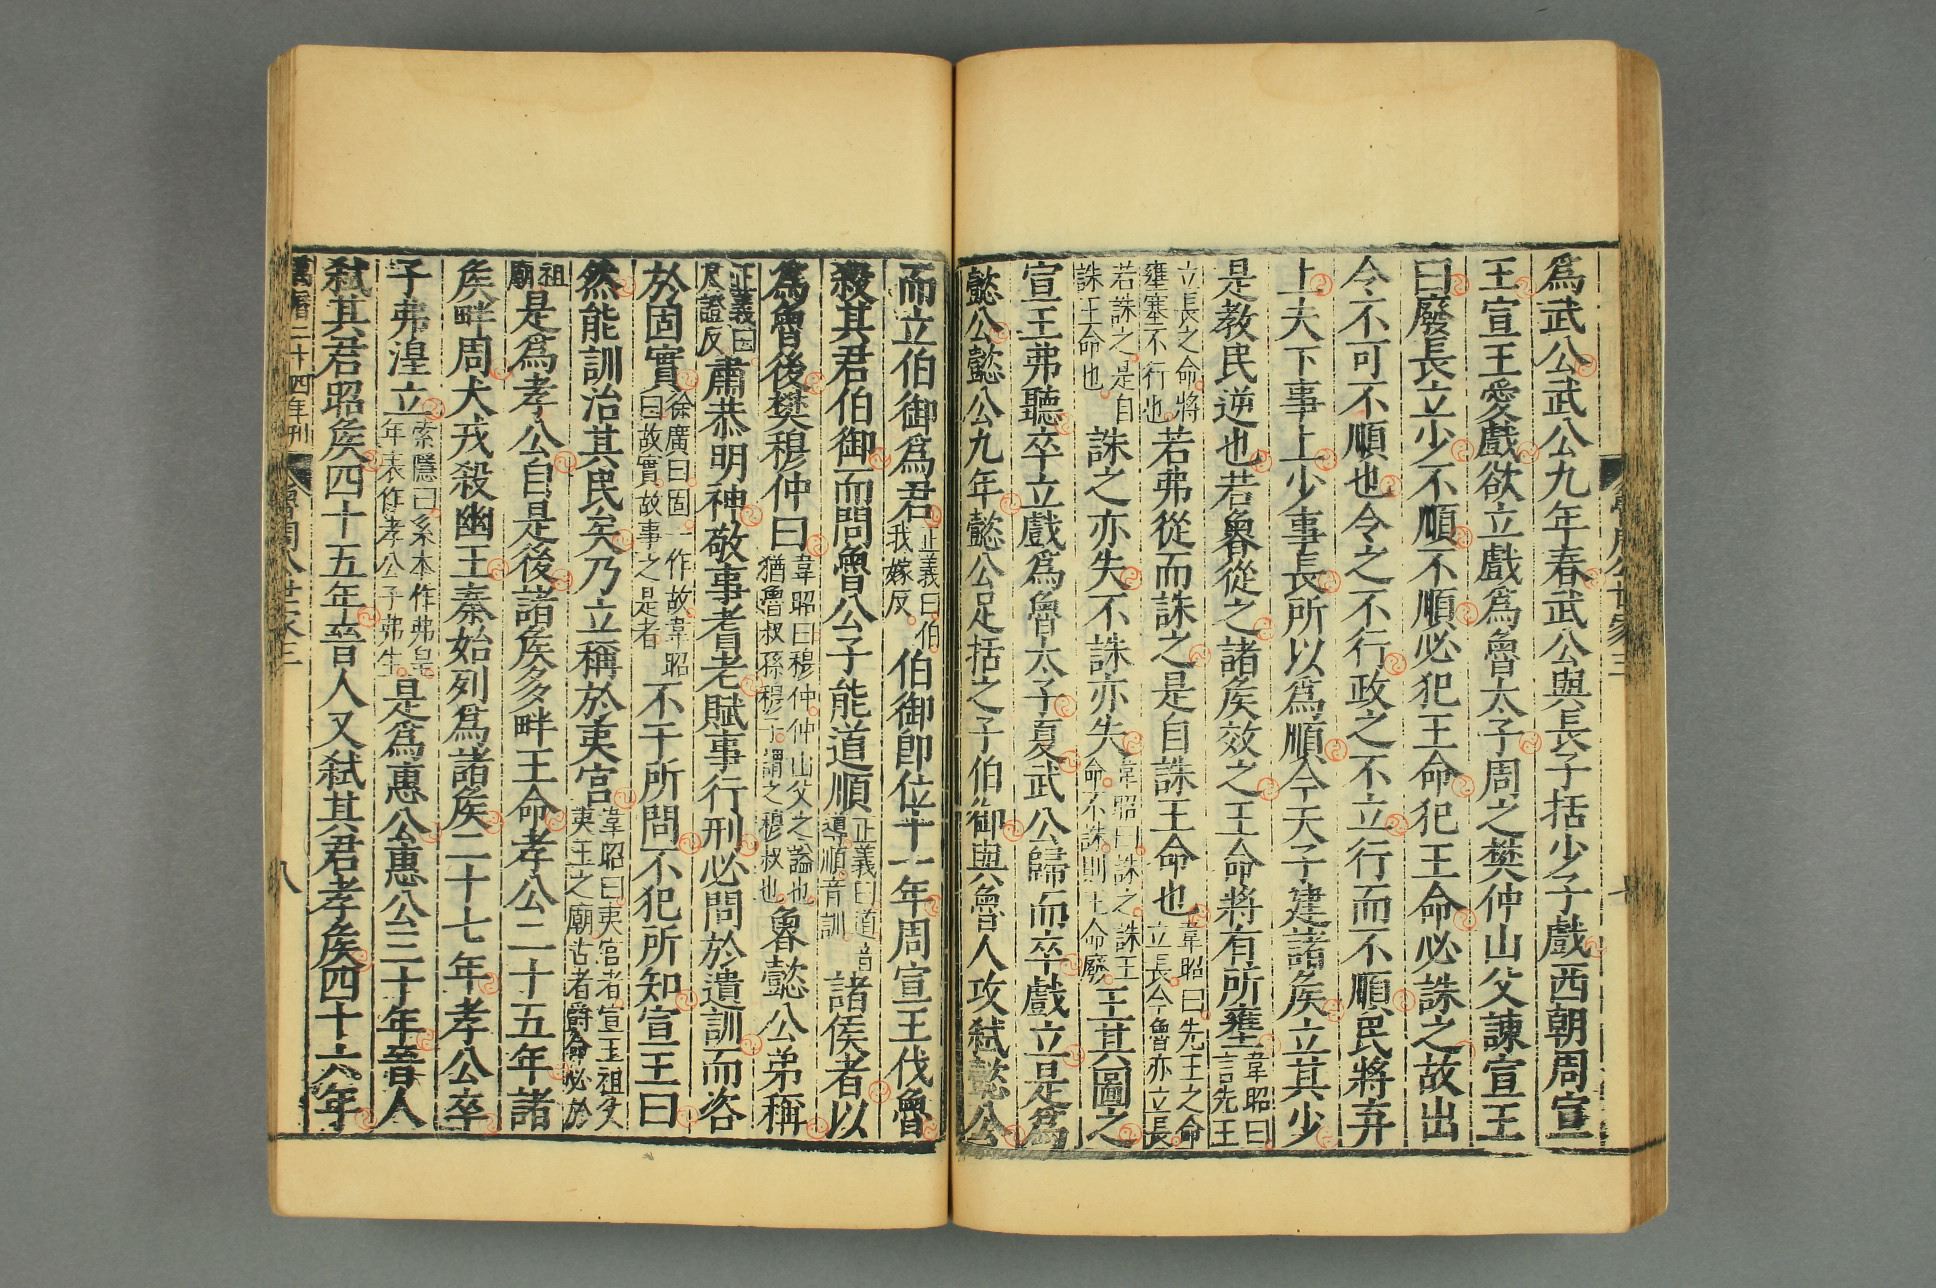 爲武公武公九年春武公與長子括少子戲西朝周宣
王宣王愛戲欲立戲爲魯太子周之樊仲山父諫宣王
曰廢長立少不順不順必犯王命犯王命必誅之故出
令不可不順也令之不行政之不立行而不順民將弃
上夫下事上少事長所以爲順今天子建諸侯立其少
是教民逆也若魯從之諸侯效之王命將有所壅韋昭曰言先王
立長之命將壅塞不行也若弗從而誅之是自誅王命也韋昭曰先王之命立長今魯亦立長
若誅之是自誅王命也誅之亦失不誅亦失韋昭曰誅之誅王命不誅則王命廢王其圖之
宣王弗聽卒立戲爲魯太子夏武公歸而卒戲立是爲
懿公懿公九年懿公兄括之子伯御與魯人攻弑懿公
而立伯御爲君正義曰伯我嫁反伯御卽位十一年周宣王伐魯
殺其君伯御而問魯公子能道順正義曰道音導順音訓諸侯者以
爲魯後樊穆仲曰韋昭曰穆仲仲山父之謚也猶魯叔孫穆子謂之穆叔也魯懿公弟稱
正義曰尺證反肅恭明神敬事耆老賦事行刑必問於遺訓而咨
於固實徐廣曰固一作故韋昭曰故實故事之是者不干所問不犯所知宣王曰
然能訓治其民矣乃立稱於夷宮韋昭曰夷宮者宣王祖父夷王之廟古者爵命必於
祖廟是爲孝公自是後諸侯多畔王命孝公二十五年諸
侯畔周犬戎殺幽王秦始列爲諸侯二十七年孝公卒
子弗湟立索隱曰系本作弗皇年表作孝公子弗生是爲惠公惠公三十年晉人
弑其君昭侯四十五年晉人又弑其君孝侯四十六年
萬曆二十四年刊 魯周公世家三 八